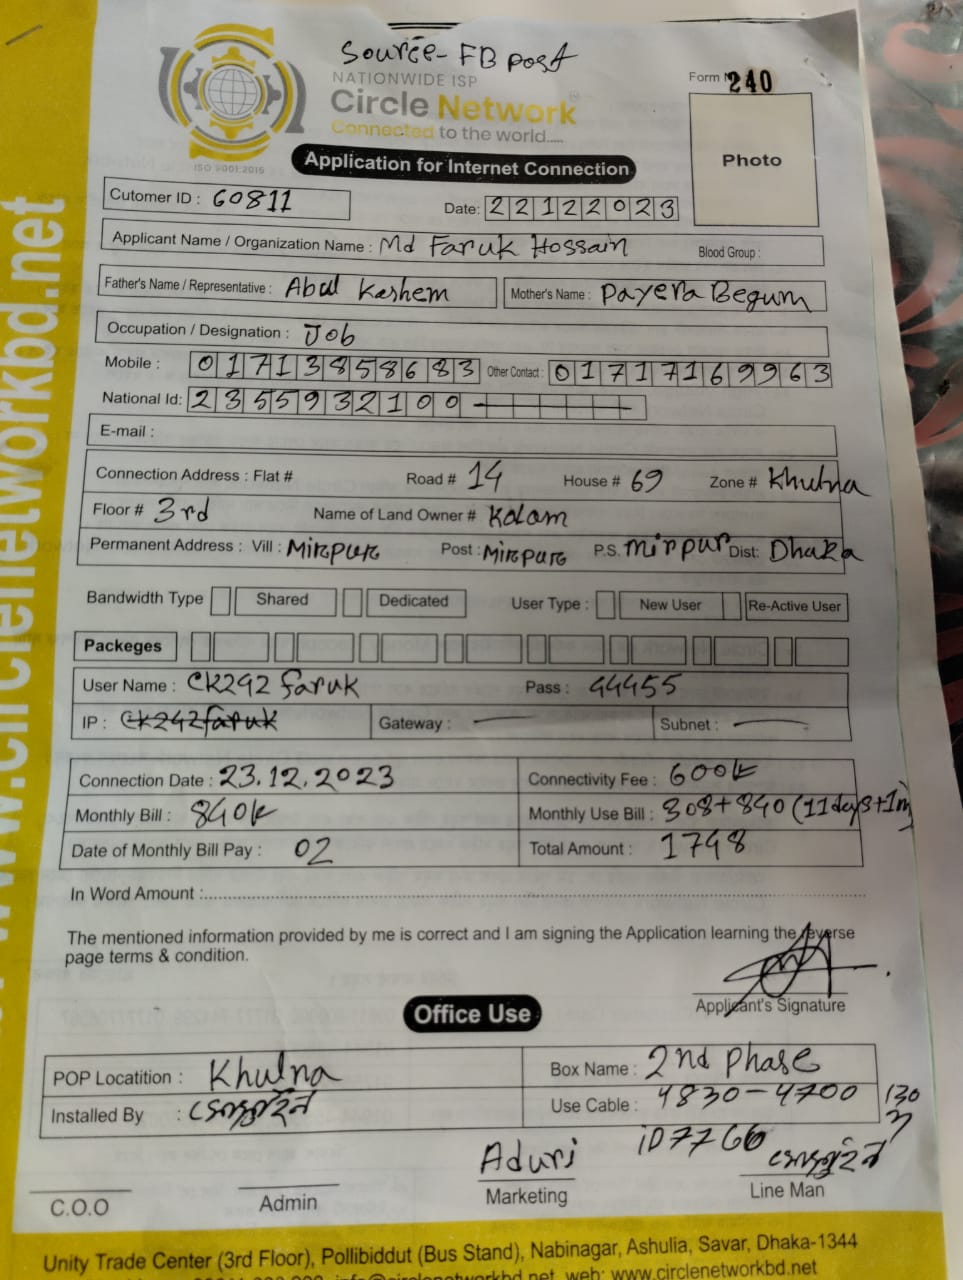 Source- FB post
NATIONWIDE ISP
Circle Network
Connected to the world.....
ISO 9001:2015
Form 240
Photo
Application for Internet Connection
Cutomer ID : 60811
Date: 22122023
Applicant Name / Organization Name : Md Faruk Hossain Blood Group :
Father's Name / Representative : Abul Kashem Mother's Name : Payera Begum
Occupation / Designation : Job
Mobile : 01713858683 Other Contact : 01717169963
National Id: 2355932100
E-mail :
Connection Address : Flat # Road # 14 House # 69 Zone # Khulna
Floor # 3rd Name of Land Owner # Kolam
Permanent Address : Vill : Mirpur Post : Mirpur P.S. mirpur Dist: Dhaka
Bandwidth Type Shared Dedicated User Type : New User Re-Active User
Packeges
User Name : CK242faruk Pass : 44455
IP : CK242faruk Gateway : — Subnet : —
Connection Date : 23.12.2023 Connectivity Fee : 600tk
Monthly Bill : 840tk Monthly Use Bill : 308+840 (11days+1m)
Date of Monthly Bill Pay : 02 Total Amount : 1748
In Word Amount :
The mentioned information provided by me is correct and I am signing the Application learning the reverse
page terms & condition.
Applicant's Signature
Office Use
POP Locatition : Khulna Box Name : 2nd phase
Installed By : Use Cable : 4830-4700 130
Aduri iD7766
C.O.O Admin Marketing Line Man
Unity Trade Center (3rd Floor), Pollibiddut (Bus Stand), Nabinagar, Ashulia, Savar, Dhaka-1344
web: www.circlenetworkbd.net
www.circlenetworkbd.net